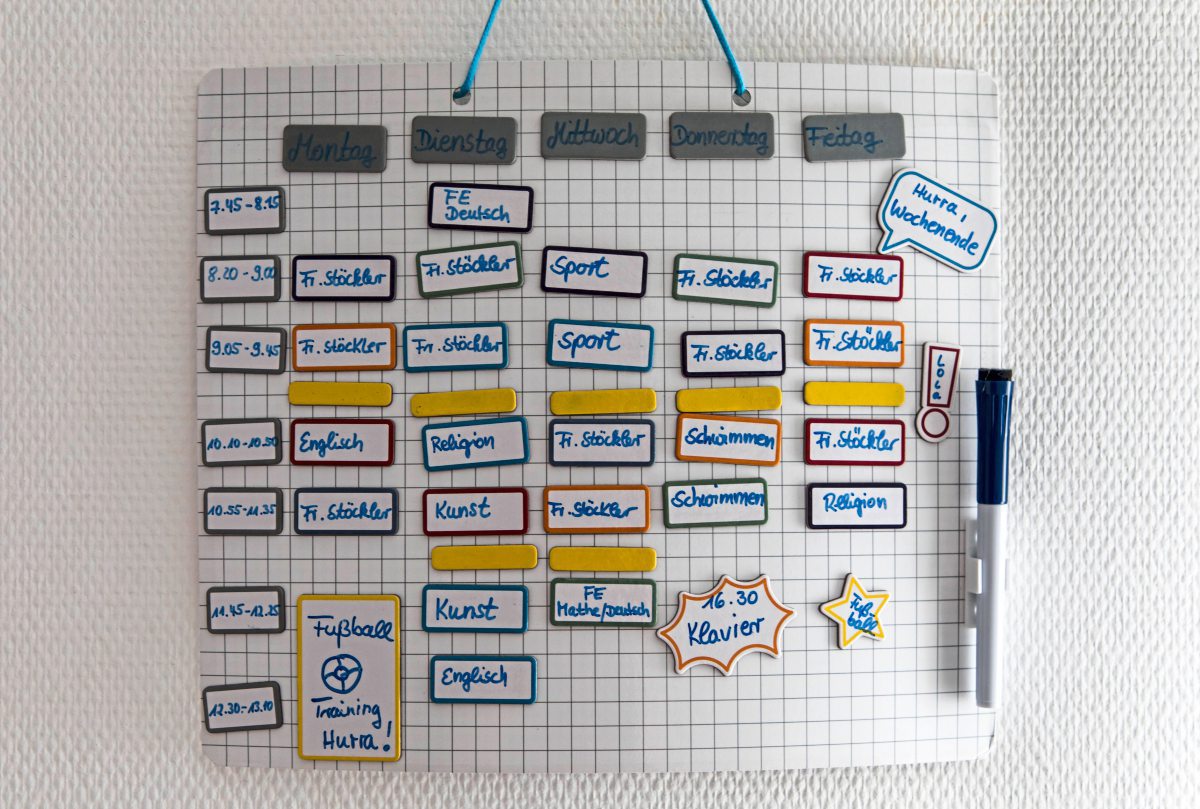 Montag Dienstag Mittwoch Donnerstag Freitag
7.45 - 8.15
FE
Deutsch
Hurra,
Wochenende
8.20 - 9.00 Fr. Stöckler Fr. Stöckler Sport Fr. Stöckler Fr. Stöckler
9.05 - 9.45 Fr. Stöckler Fr. Stöckler Sport Fr. Stöckler Fr. Stöckler
Lola
10.10 - 10.50 Englisch Religion Fr. Stöckler Schwimmen Fr. Stöckler
10.55 - 11.35 Fr. Stöckler Kunst Fr. Stöckler Schwimmen Religion
11.45 - 12.25
Fußball
Training
Hurra!
Kunst
FE
Mathe/Deutsch
16.30
Klavier
Fuß-
ball
12.30 - 13.10
Englisch